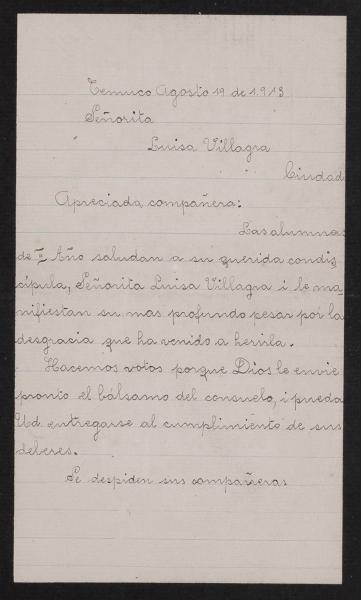 Temuco Agosto 19 de 1.913
Señorita
Luisa Villagra
Ciudad
Apreciada compañera:
Las alumnas
de I Año saludan a su querida condis
cípula, Señorita Luisa Villagra i le ma-
nifiestan su mas profundo pesar por la
desgracia que ha venido a herirla.
Hacemos votos porque Dios le envie
pronto el bálsamo del consuelo, i pueda
Ud entregarse al cumplimiento de sus
deberes.
Se despiden sus compañeras